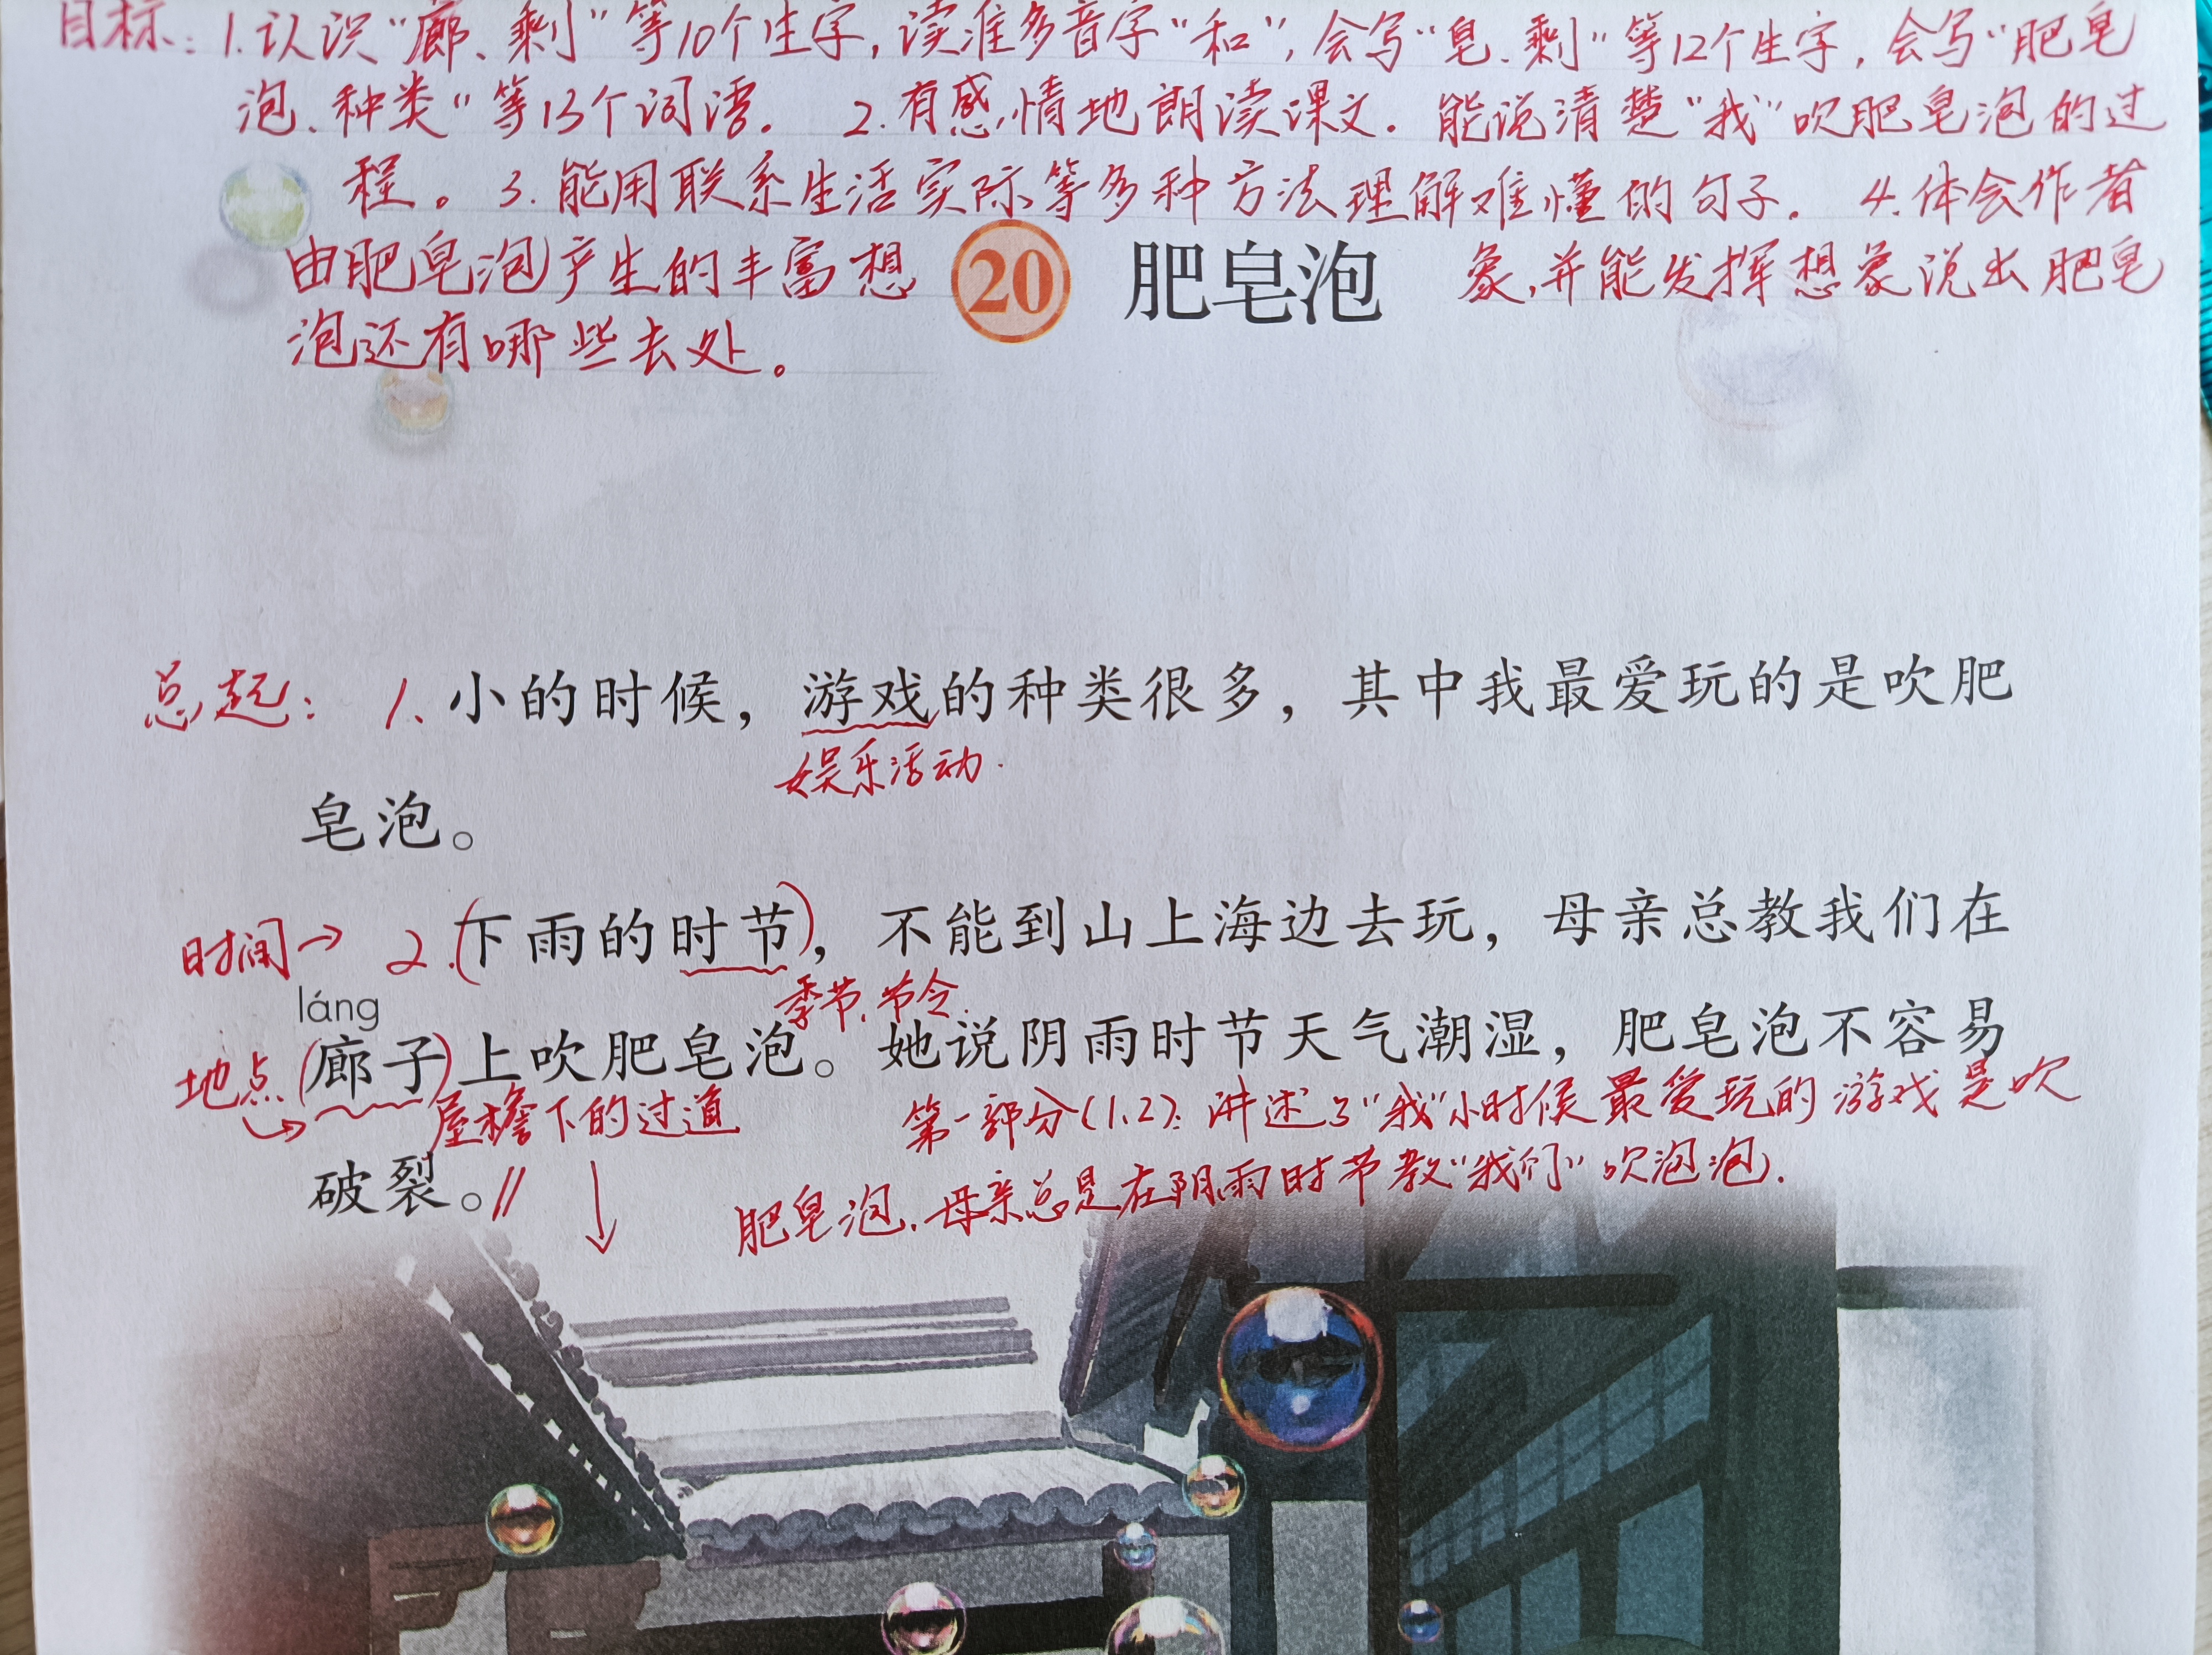 目标：1.认识“廊、剩”等10个生字，读准多音字“和”，会写“皂、剩”等12个生字，会写“肥皂
泡、种类”等13个词语。 2.有感情地朗读课文。能说清楚“我”吹肥皂泡的过
程。3.能用联系生活实际等多种方法理解难懂的句子。 4.体会作者
由肥皂泡产生的丰富想
20 肥皂泡
象，并能发挥想象说出肥皂
泡还有哪些去处。
总起： 1.小的时候，游戏的种类很多，其中我最爱玩的是吹肥
娱乐活动.
皂泡。
时间→ 2.(下雨的时节)，不能到山上海边去玩，母亲总教我们在
季节、节令.
láng
地点 (廊子)上吹肥皂泡。她说阴雨时节天气潮湿，肥皂泡不容易
屋檐下的过道
第一部分(1.2)：讲述了“我”小时候最爱玩的游戏是吹
破裂。//
肥皂泡.母亲总是在阴雨时节教“我们”吹泡泡.